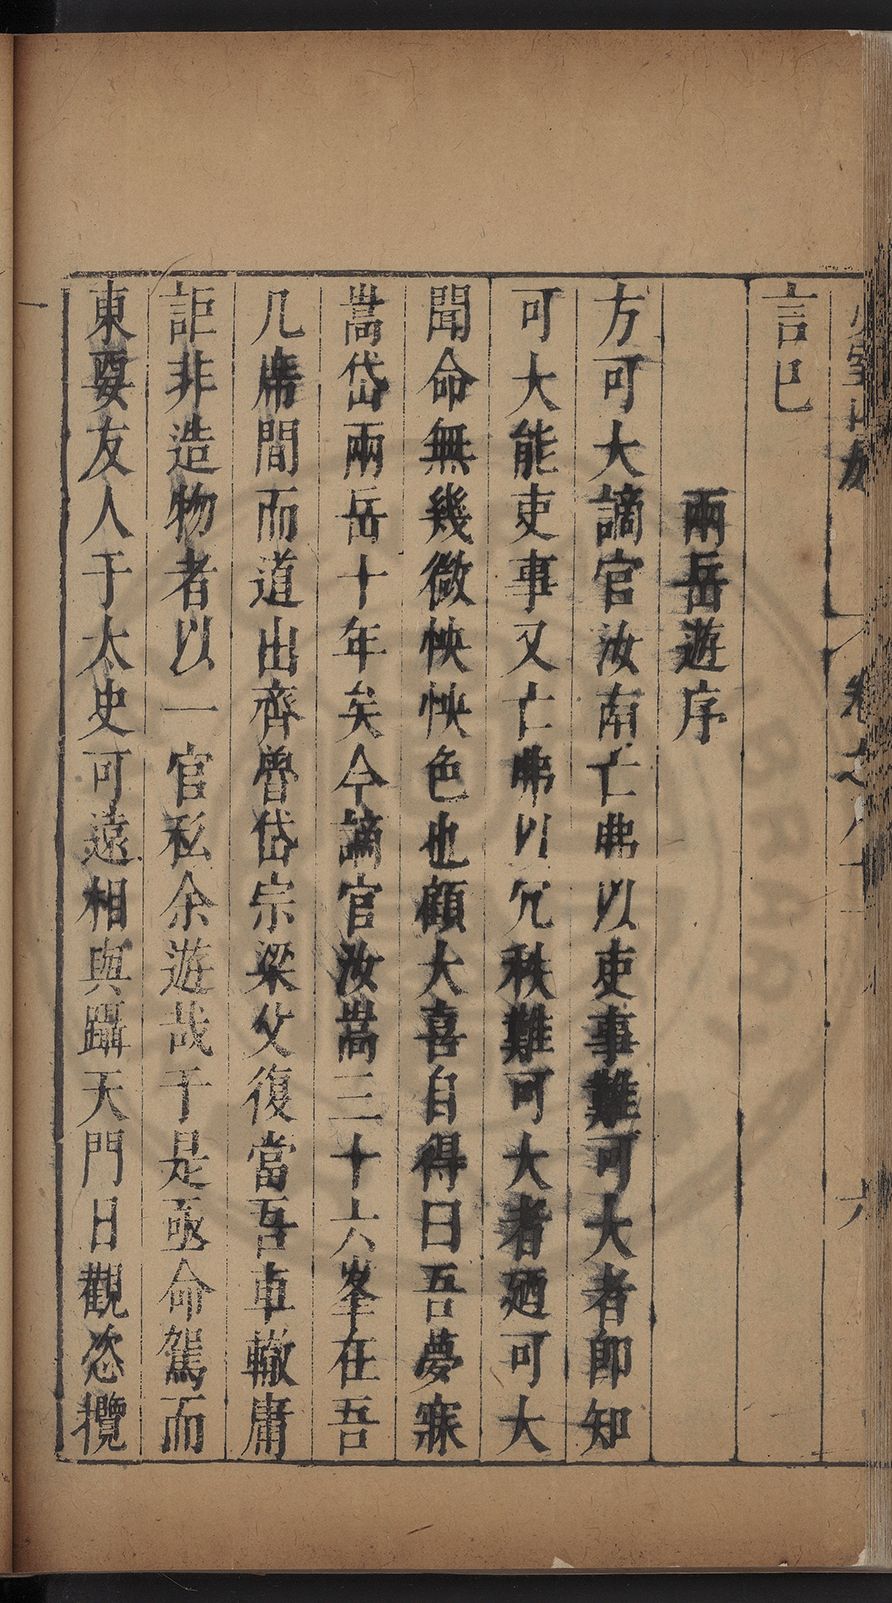 卷之八十
六
言已
兩岳遊序
方可大謫官汝南亡弗以吏事難可大者即知
可大能吏事又亡弗以冗秩難可大者廼可大
聞命無幾微怏怏色也顧大喜自得曰吾夢寐
嵩岱兩岳十年矣今謫官汝嵩三十六峯在吾
几席間而道出齊魯岱宗梁父復當吾車轍庸
詎非造物者以一官私余遊哉于是亟命駕而
東要友人于太史可遠相與躡天門日觀恣攬